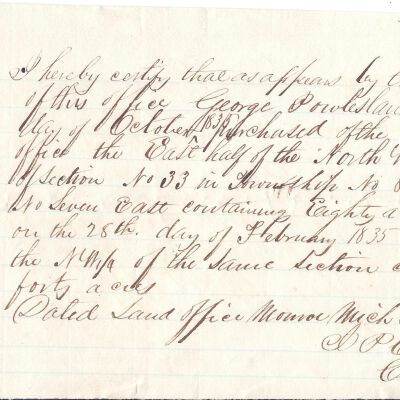 I hereby certify that as appears by
of this office George Powlesla
day of October 183 Purchased of the
office the East half of the North
of Section No 33 in Township No
No Seven East containing Eighty a
on the 28th. day of February 1835
the of the same section
forty acres
Dated Land office Monroe Mich
I P